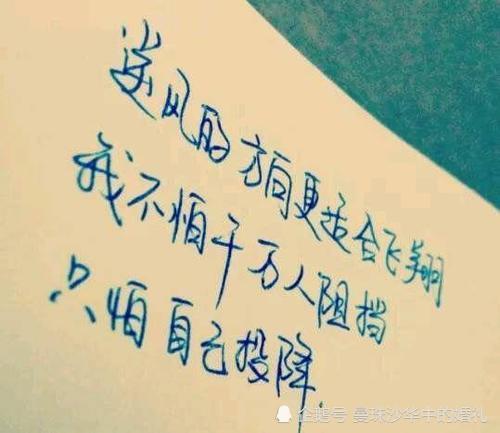 逆风的方向更适合飞翔
我不怕千万人阻挡
只怕自己投降.
企鹅号 曼珠沙华中的婚礼